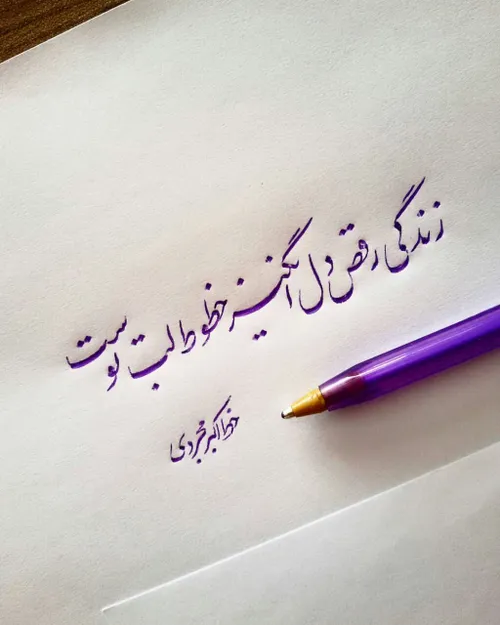 زندگی رقص دل انگیز خطوط لب توست
خط اکبر مجردی